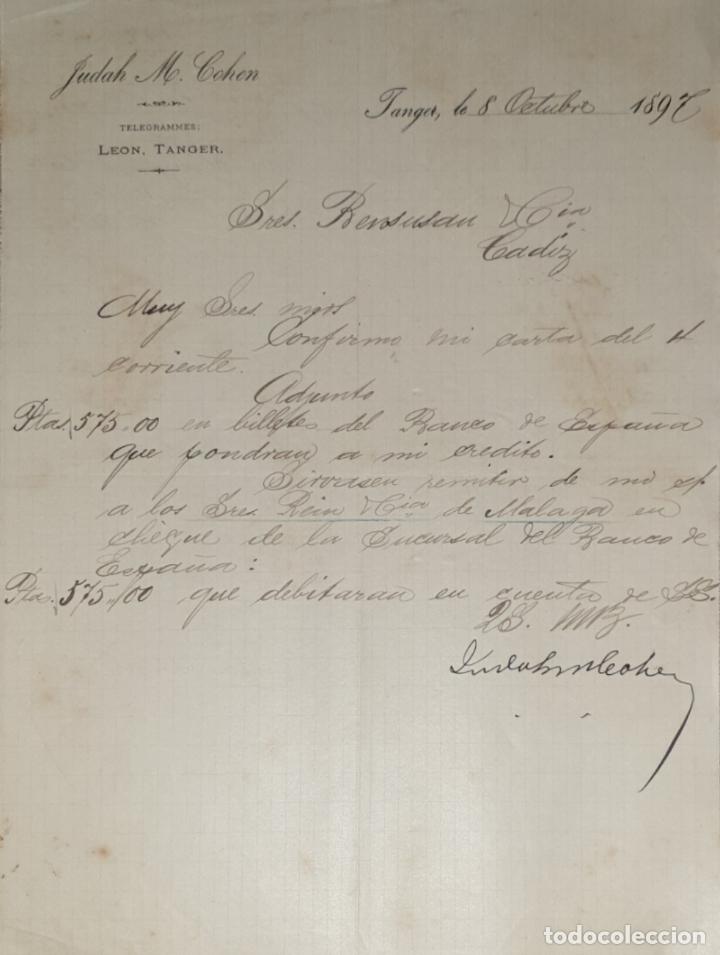 Judah M. Cohen
TELEGRAMMES:
LEON, TANGER.
Tanger, le 8 Octubre 1897
Sres. Bensusan & Cia
Cadiz
Muy Sres. mios
Confirmo mi carta del 4
corriente.
Adjunto
Ptas. 575.00 en billetes del Banco de España
que pondran a mi credito.
Sirvasen remitir de mi
a los Sres. Rein & Cia de Malaga en
chèque de la Sucursal del Banco de
España:
Ptas. 575,,00 que debitaran en cuenta de SS.
QS. MB.
Judah M Cohen
todocoleccion